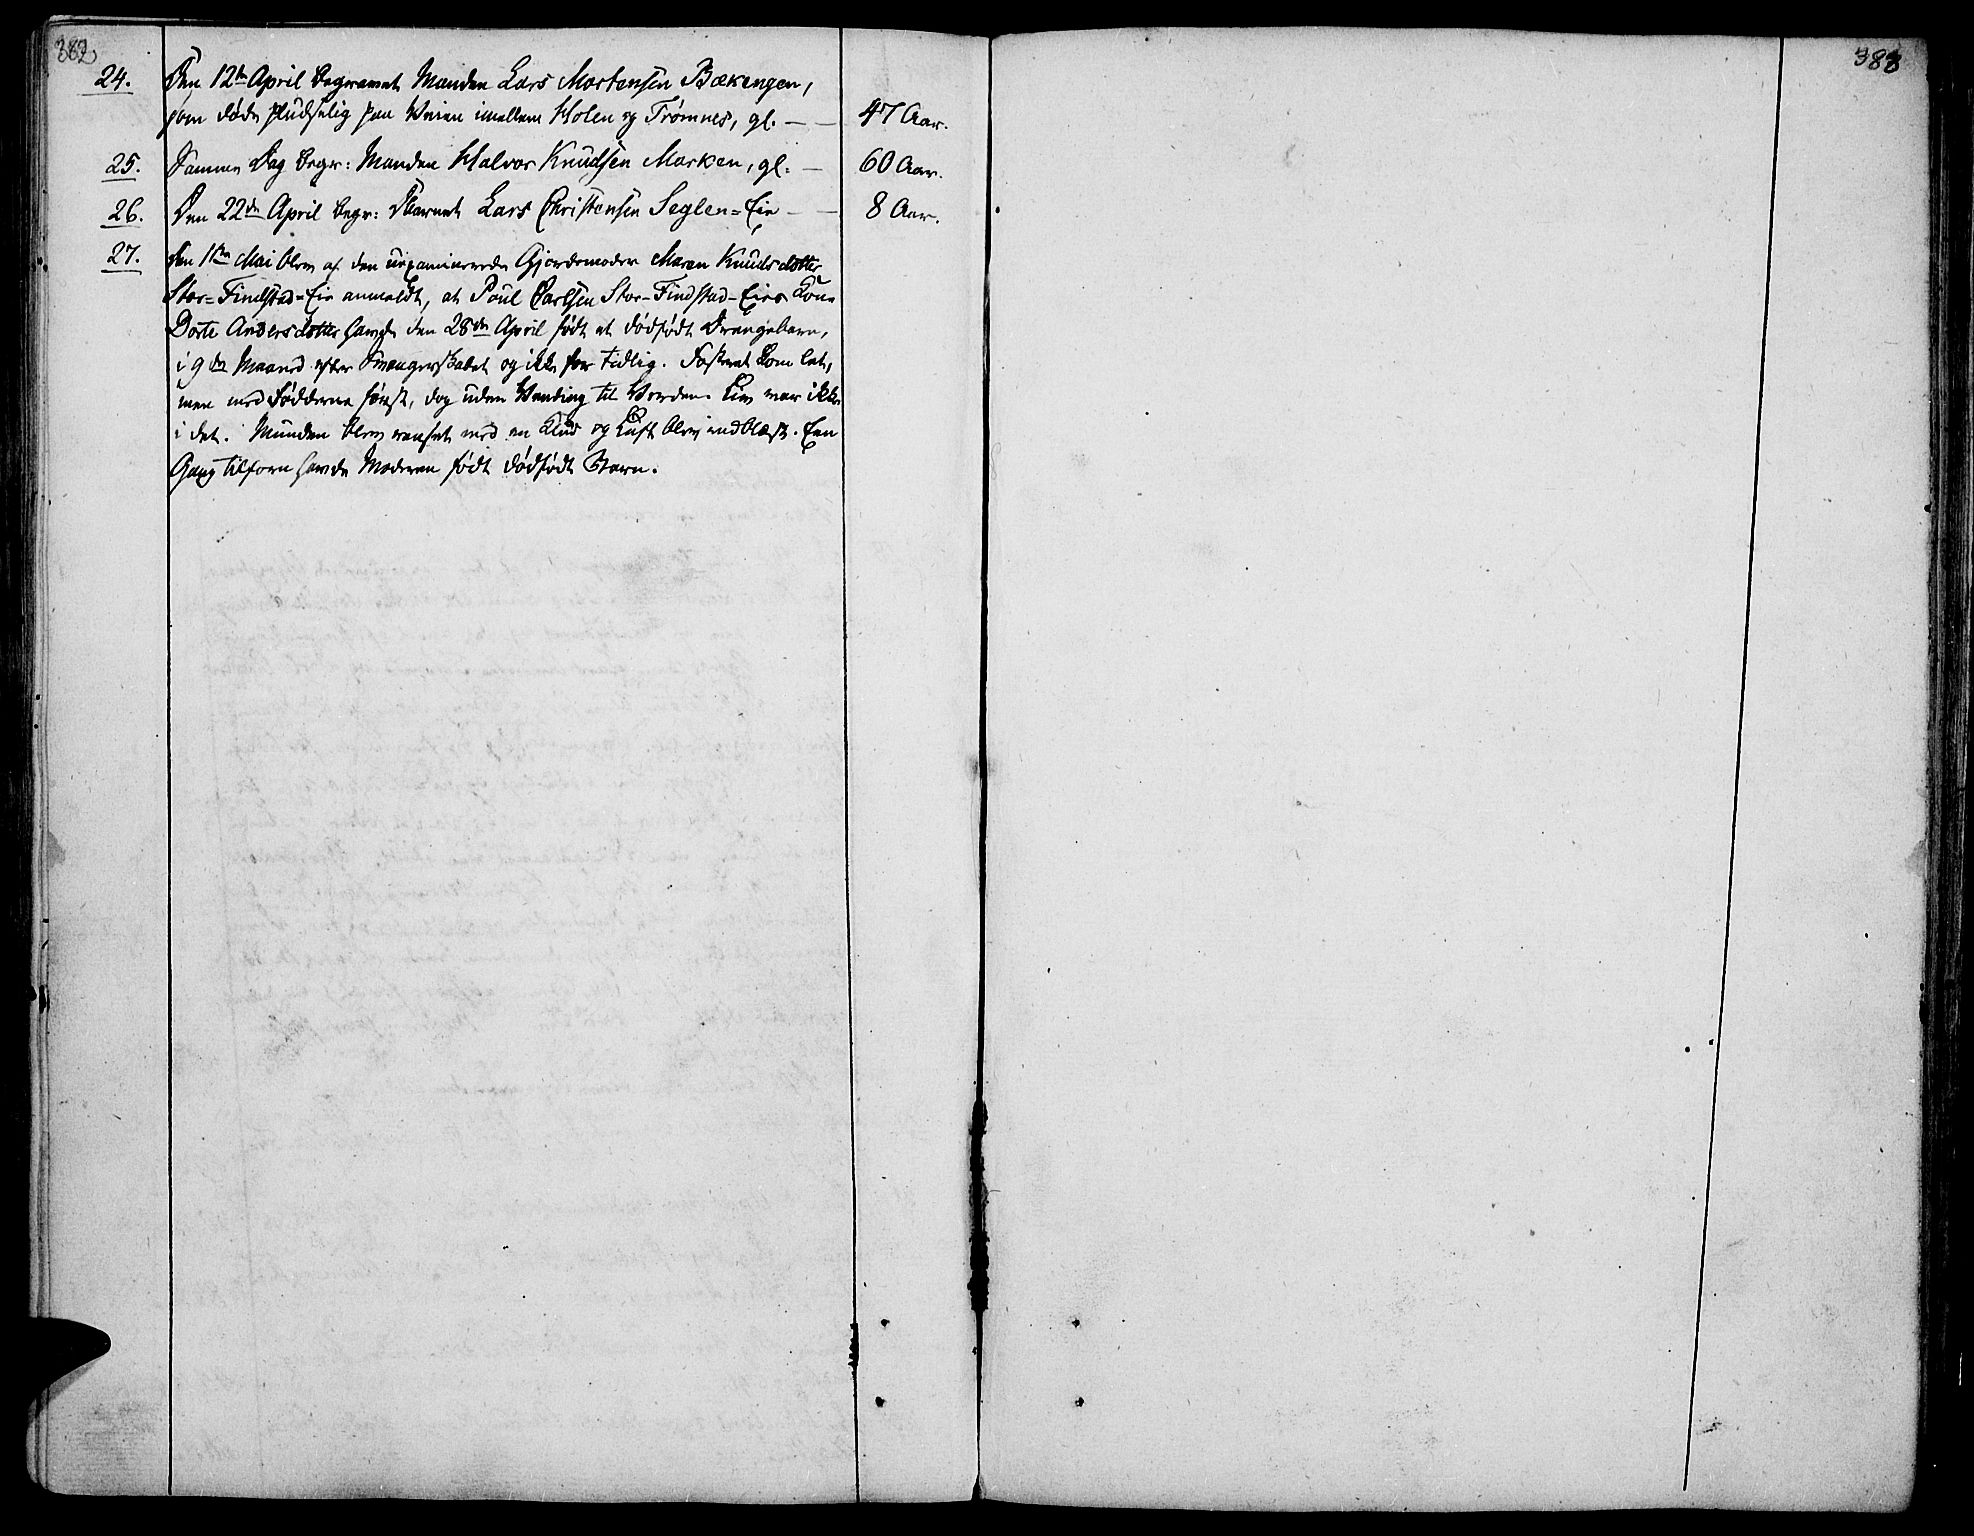 382
24. Den 12te April begravet Manden Lars Mortensen Bækengen,
som døde pludselig paa Veien imellem Holen og Trømnes, gl. — — 47 Aar.
25. Samme Dag begr: Manden Halvor Knudsen Marken, gl. — 60 Aar.
26. Den 22de April begr: Barnet Lars Christensen Seglen=Eie — — 8 Aar.
27. Den 1ste Mai blev af den uexaminerede Gjordemoder Maren Knudsdotter
Stor=Findstad=Eie anmeldt, at Poul Carlsen Stor-Findstad-Eies Kone
Dorte Andersdotter havde den 28de April født et dødfødt Drengebarn,
i 9de Maaned efter Svangerskabet og ikke for tidlig. Fosteret kom let,
men med Fødderne først, dog uden Vending til Verden. Liv var ikke
i det. Munden blev renset med en Klud og Luft blev indblæst. Een
Gang tilforn havde Moderen født dødfødt Barn.
383